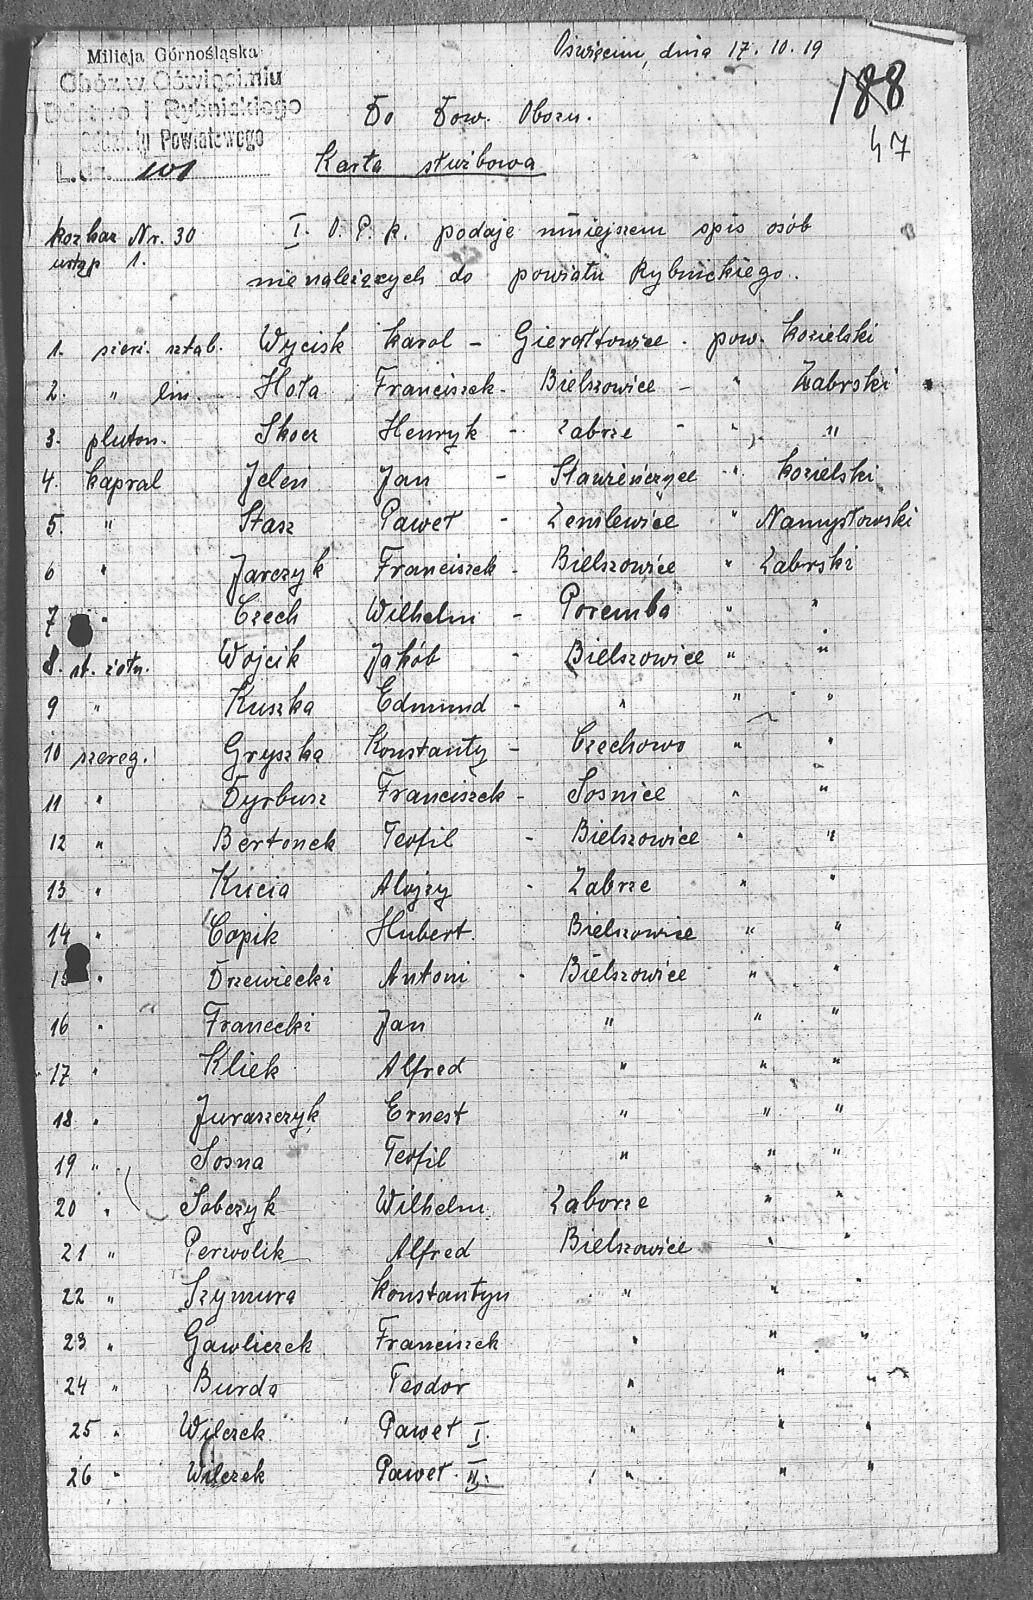 Milicja Górnośląska
Obóz w Oświęcimiu
Dźctwo I Rybnickiego
oddziału Powiatowego
L. dz. 101
Oświęcim, dnia 17. 10. 19
188
47
Do Dow. Obozu.
Karta służbowa
Rozkaz Nr. 30
ustęp 1.
I. O. P. R. podaje niniejszem spis osób
nienależących do powiatu Rybnickiego.
1. sierż. sztab. Wycisk Karol - Gierałtowice - pow. Kozielski
2. " lin. Hola Franciszek - Bielszowice - " Zabrski
3. pluton. Skocz Henryk - Zabrze - " "
4. Kapral Jeleń Jan - Sławięczyce - " Kozielski
5. " Stasz Paweł - " Namysłowski
6 " Jarczyk Franciszek - Bielszowice " Zabrski
7 " Czech Wilhelm - Poremba " "
8. st. żołn. Wojcik Jakób - Bielszowice " "
9 " Kuszka Edmund - " " "
10 szereg. Gryszka Konstanty - Czechowo " "
11 " Dyrbusz Franciszek - Sosnice " "
12 " Bertonek Teofil - Bielszowice " "
13 " Kucia Alojzy - Zabrze " "
14 " Copik Hubert. Bielszowice " "
15 " Drzewiecki Antoni - Bielszowice " "
16 " Franecki Jan " " "
17 " Kliek Alfred " " "
18 " Juraszczyk Ernest " " "
19 " Sosna Teofil " " "
20 " Sobczyk Wilhelm Zaborze " "
21 " Perwolik Alfred Bielszowice " "
22 " Szymura Konstantyn " " "
23 " Gawliczek Franciszek " " "
24 " Burda Teodor " " "
25 " Wilczek Paweł I. " " "
26 " Wilczek Paweł II. " " "